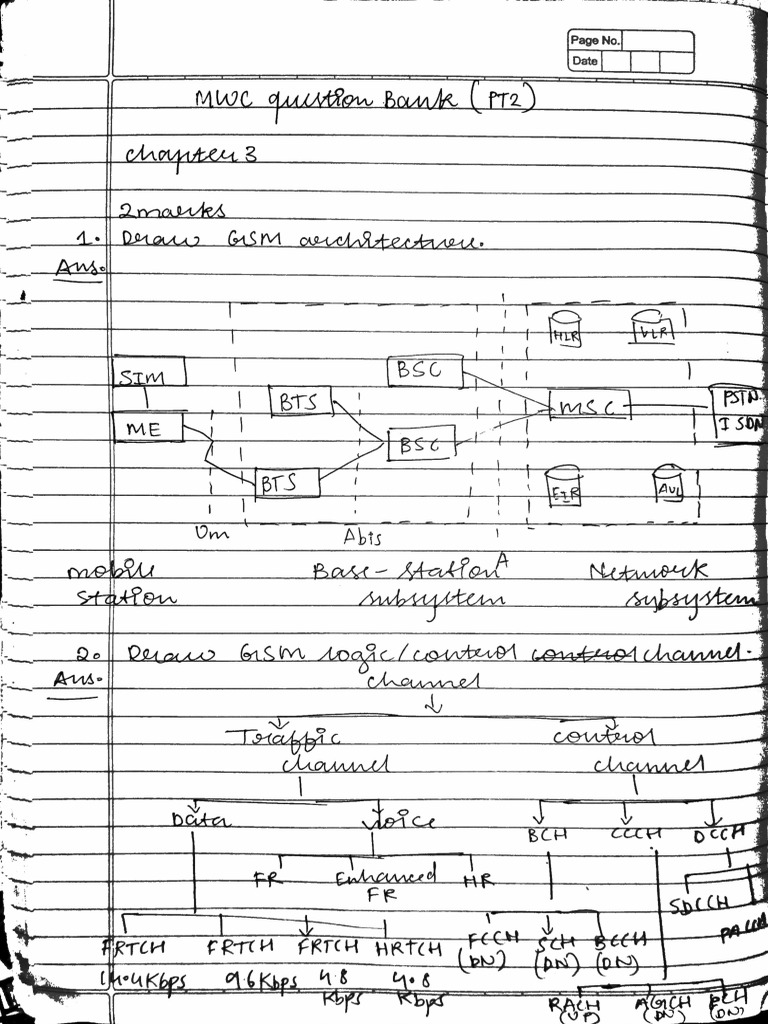 Page No.
Date
MWC question Bank (PT2)
Chapter 3
2 marks
1. Draw GSM architecture.
Ans.
HLR VLR
SIM BSC
BTS MSC PSTN
ME BSC ISDN
BTS EIR AUC
Um Abis
A
Mobile Base-station Network
station subsystem subsystem
2. Draw GSM logic/control control channel.
Ans. channel
Traffic control
channel channel
Data Voice BCH CCCH DCCH
FR Enhanced HR
FR
SDCCH
FRTCH FRTCH FRTCH HRTCH FCCH SCH BCCH
(DN) (DN) (DN)
14.4Kbps 9.6Kbps 4.8 4.8
Kbps Kbps
RACH AGCH PCH
(UP) (DN) (DN)